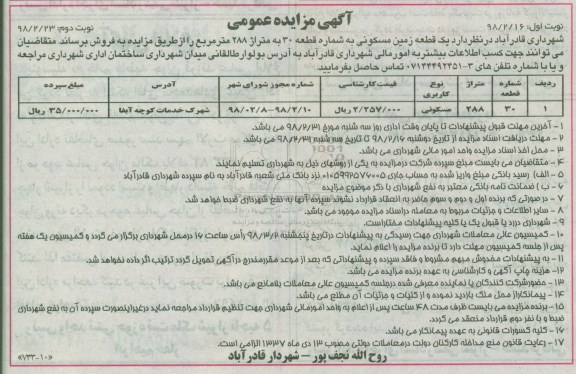 آگهی مزایده عمومی
نوبت اول: ۹۸/۲/۱۶
نوبت دوم: ۹۸/۲/۲۳
شهرداری قادرآباد در نظر دارد یک قطعه زمین مسکونی به شماره قطعه ۳۰ به متراژ ۲۸۸ مترمربع را از طریق مزایده به فروش برساند. متقاضیان
می توانند جهت کسب اطلاعات بیشتر به امور مالی شهرداری قادرآباد به آدرس بولوار طالقانی میدان شهرداری ساختمان اداری شهرداری مراجعه
و یا با شماره تلفن های ۳-۰۷۱۴۴۴۹۲۳۵۱ تماس حاصل بفرمایید.
ردیف شماره قطعه متراژ نوع کاربری قیمت کارشناسی شماره مجوز شورای شهر آدرس مبلغ سپرده
۱ ۳۰ ۲۸۸ مسکونی ۲/۲۵۷/۰۰۰ ریال ۹۸/۰۲/۸-۹۸/۲/۱۰ شهرک خدمات کوچه آبفا ۳۵/۰۰۰/۰۰۰ ریال
۱ - آخرین مهلت قبول پیشنهادات تا پایان وقت اداری روز سه شنبه مورخ ۹۸/۲/۳۱ می باشد.
۲ - مهلت دریافت اسناد مزایده از تاریخ دوشنبه ۹۸/۲/۱۶ تا تاریخ سه شنبه ۹۸/۲/۳۱ می باشد.
۳ - محل اخذ اسناد مزایده واحد امور مالی شهرداری می باشد.
۴ - متقاضیان می بایست مبلغ سپرده شرکت در مزایده به یکی از روشهای ذیل به شهرداری تسلیم نمایند
۵ - الف) رسید بانکی مبلغ واریز شده به حساب جاری ۰۱۰۵۹۹۲۵۷۶۰۰۵ نزد بانک ملی شعبه قادرآباد به نام سپرده شهرداری قادرآباد
۶ - ب) ضمانت نامه بانکی معتبر به نفع شهرداری با ذکر موضوع مزایده
۷ - در صورتی که برنده اول و دوم و سوم حاضر به انعقاد قرارداد نشوند سپرده آنها به نفع شهرداری ضبط خواهد شد.
۸ - سایر اطلاعات و جزئیات مربوط به معامله در اسناد مزایده موجود می باشد.
۹ - شهرداری در رد یا قبول یک یا کلیه پیشنهادات مختار است.
۱۰ - کمیسیون عالی معاملات شهرداری جهت رسیدگی به پیشنهادات در تاریخ پنجشنبه ۹۸/۳/۲ رأس ساعت ۱۶ در محل شهرداری برگزار می گردد و کمیسیون یک هفته
پس از جلسه کمیسیون مهلت دارد تا برنده مزایده را اعلام نماید.
۱۱ - به پیشنهادات مخدوش مبهم مشروط و فاقد سپرده و پیشنهاداتی که بعد از موعد مقرر مندرج در آگهی تحویل گردد ترتیب اثر داده نخواهد شد.
۱۲ - هزینه چاپ آگهی و کارشناسی به عهده برنده مزایده می باشد.
۱۳ - حضور شرکت کنندگان یا نماینده معرفی شده در جلسه کمیسیون عالی معاملات بلامانع می باشد.
۱۴ - پیمانکار از محل ملک بازدید نموده و از کلیات و جزئیات آن مطلع می باشد.
۱۵ - برنده مزایده می بایست ظرف مدت ۴۸ ساعت پس از اعلام به واحد امور مالی شهرداری جهت تنظیم قرارداد مراجعه نماید در غیر اینصورت سپرده آن به نفع شهرداری
ضبط و با نفر دوم قرارداد منعقد می گردد.
۱۶ - کلیه کسورات قانونی به عهده پیمانکار می باشد.
۱۷ - رعایت قانون منع مداخله کارکنان دولت در معاملات دولتی مصوب ۱۳ دی ماه ۱۳۳۷ الزامی است.
روح الله نجف پور - شهردار قادرآباد
«۷۳۳-۱۰»